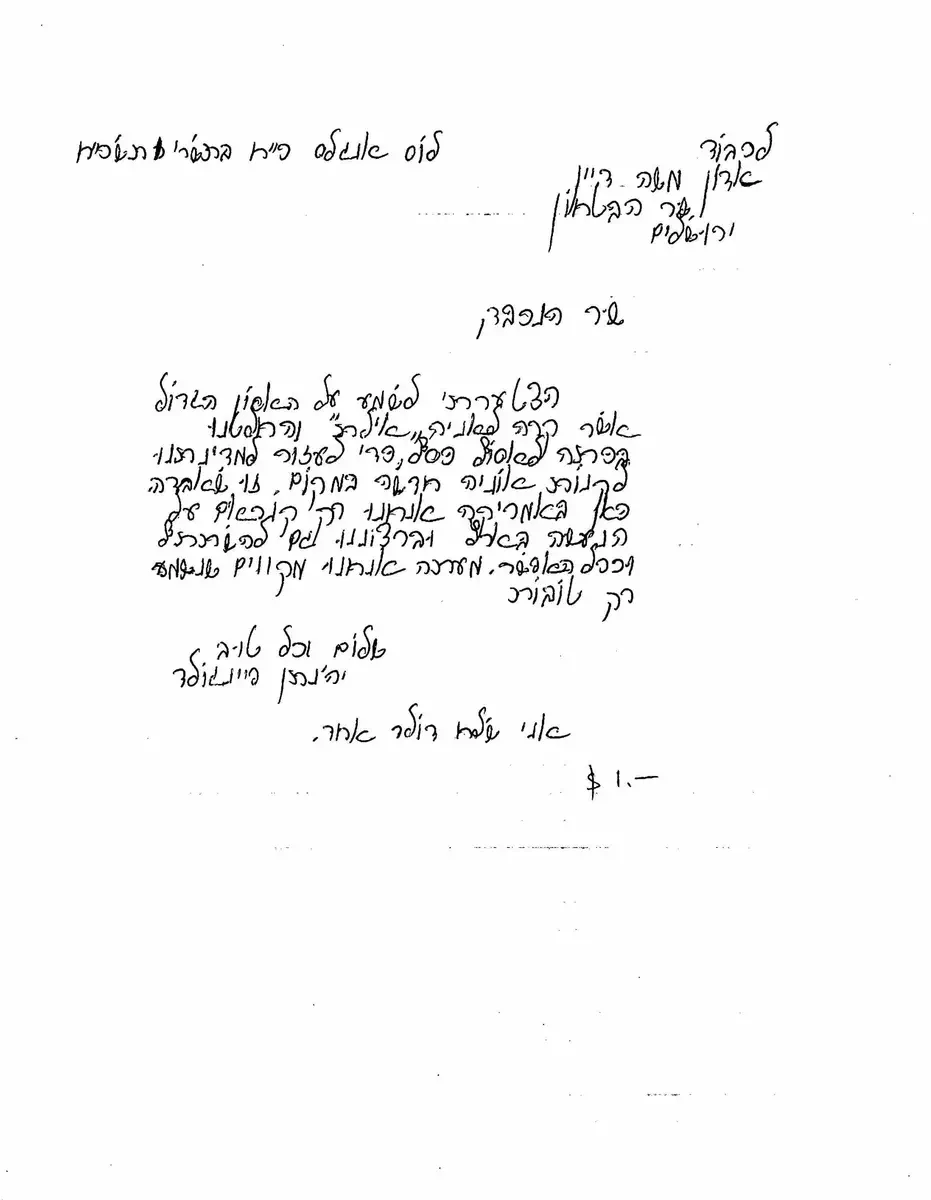 לכבוד
אדון משה דיין
שר הבטחון
ירושלים
לוס אנגלס כ״ח בתשרי תשכ״ח
שר הנכבד,
הצטערתי לשמע על האסון הגדול
אשר קרה לאניה „אילת״ והחלטנו
בכתה לאסוף כסף, כדי לעזור למדינתנו
לקנות אוניה חדשה במקום, זו שאבדה
כאן באמריקה אנחנו רק קוראים על
הנעשה בארץ וברצוננו גם להשתתף
ככל האפשר. מערכה אנחנו מקווים שנשמע
רק טובות
שלום וכל טוב
יהונתן פיינגולד
אני שולח דולר אחד.
$ 1.—